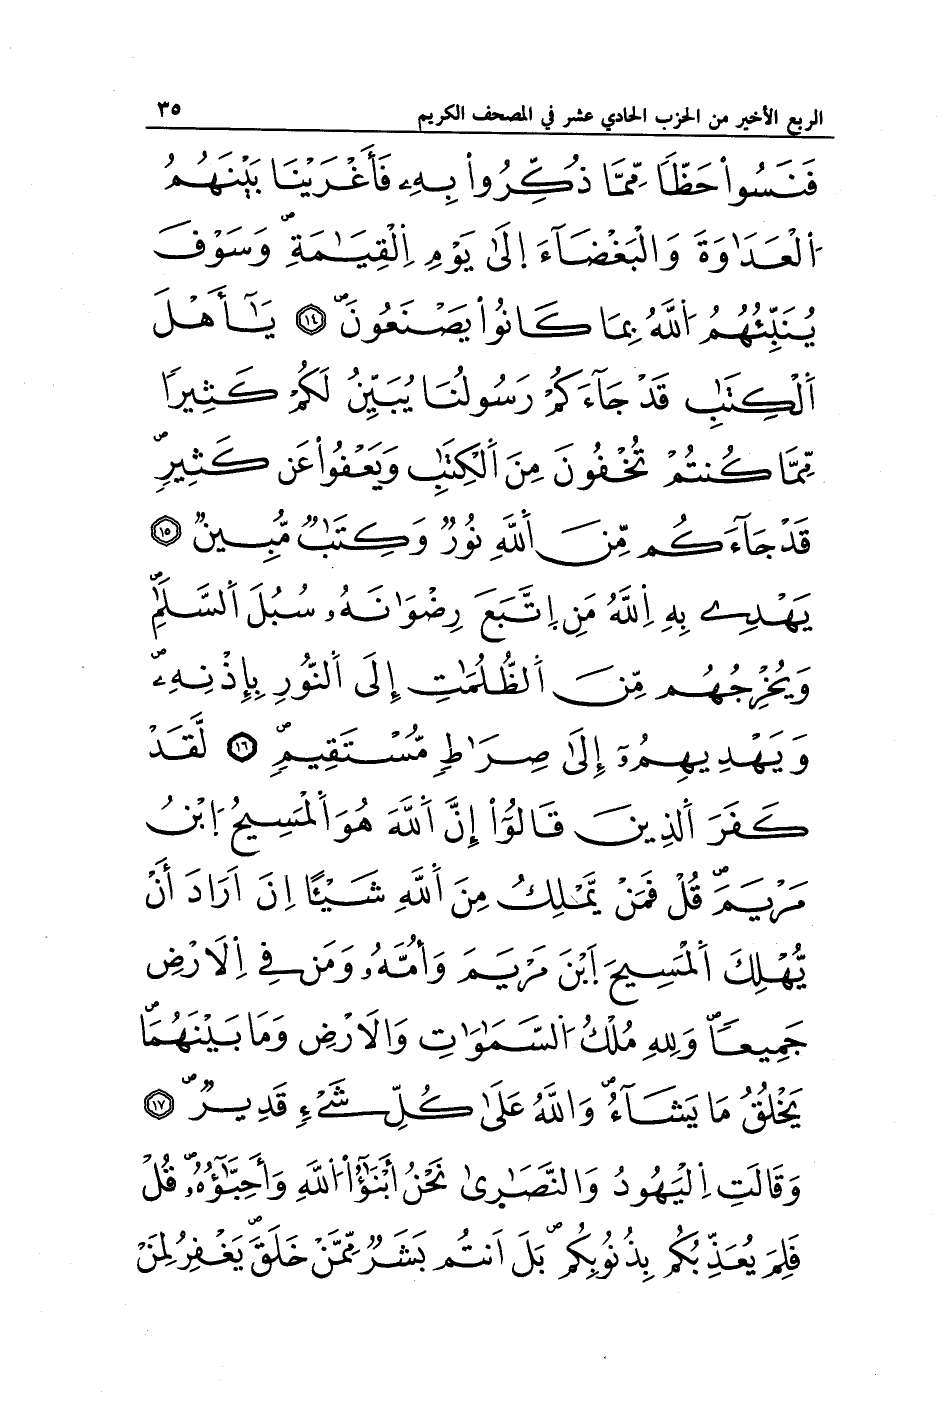 الربع الأخير من الحزب الحادي عشر في المصحف الكريم ٣٥
فَنَسُواْ حَظّاً مِّمَّا ذُكِّرُواْ بِهِۦ فَأَغْرَيْنَا بَيْنَهُمُ
اُ۬لْعَدَٰوَةَ وَالْبَغْضَآءَ اِلَىٰ يَوْمِ اِ۬لْقِيَٰمَةِۖ وَسَوْفَ
يُنَبِّئُهُمُ اُ۬للَّهُ بِمَا كَانُواْ يَصْنَعُونَۖ ١٤ يَٰٓأَهْلَ
اَ۬لْكِتَٰبِ قَدْ جَآءَكُمْ رَسُولُنَا يُبَيِّنُ لَكُمْ كَثِيراً
مِّمَّا كُنتُمْ تُخْفُونَ مِنَ اَ۬لْكِتَٰبِ وَيَعْفُواْ عَن كَثِيرٍۖ
قَدْ جَآءَكُم مِّنَ اَ۬للَّهِ نُورٌ وَكِتَٰبٌ مُّبِينٌ ١٥
يَهْدِے بِهِ اِ۬للَّهُ مَنِ اِ۪تَّبَعَ رِضْوَٰنَهُۥ سُبُلَ اَ۬لسَّلَٰمِۖ
وَيُخْرِجُهُم مِّنَ اَ۬لظُّلُمَٰتِ إِلَى اَ۬لنُّورِ بِإِذْنِهِۦۖ
وَيَهْدِيهِمُۥٓ إِلَىٰ صِرَٰطٍ مُّسْتَقِيمٍۖ ١٦ لَّقَدْ
كَفَرَ اَ۬لذِينَ قَالُوٓاْ إِنَّ اَ۬للَّهَ هُوَ اَ۬لْمَسِيحُ اُ۪بْنُ
مَرْيَمَۖ قُلْ فَمَنْ يَّمْلِكُ مِنَ اَ۬للَّهِ شَيْئاً اِنَ اَرَادَ أَنْ
يُّهْلِكَ اَ۬لْمَسِيحَ اَ۪بْنَ مَرْيَمَ وَأُمَّهُۥ وَمَن فِے اِ۬لَارْضِ
جَمِيعاًۖ وَلِلهِ مُلْكُ اُ۬لسَّمَٰوَٰتِ وَالَارْضِ وَمَا بَيْنَهُمَاۖ
يَخْلُقُ مَا يَشَآءُۖ وَاللَّهُ عَلَىٰ كُلِّ شَےْءٍ قَدِيرٌۖ ١٧
وَقَالَتِ اِ۬لْيَهُودُ وَالنَّصَٰرِىٰ نَحْنُ أَبْنَٰٓؤُاْ اُ۬للَّهِ وَأَحِبَّٰٓؤُهُۥۖ قُلْ
فَلِمَ يُعَذِّبُكُم بِذُنُوبِكُمۖ بَلَ اَنتُم بَشَرٌ مِّمَّنْ خَلَقَۖ يَغْفِرُ لِمَنْ